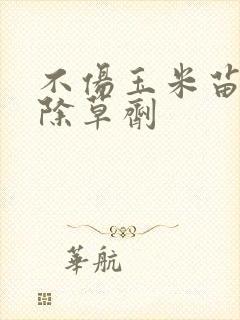 不傷玉米苗
除草劑
華航